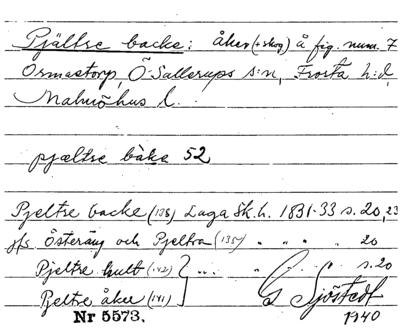 Pjältse backe: åker (+ skog) å fig. num. 7
Ormastorp, Ö. Sallerups s:n, Frosta h:d,
Malmöhus l.
pjæltse bàke 52
Pjeltse backe (138) Laga Sk. h. 1831-33 s. 20, 23
jfs. Österäng och Pjeltsa (135) " " " 20
Pjeltse hult (142) } " " " s. 20
Pjeltse åker (141)
G Sjöstedt
Nr 5573. 1940